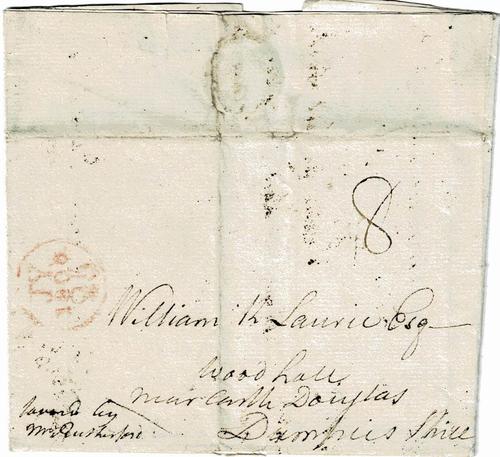 8
JY
180
William K Laurie Esq
Wood hall
near Castle Douglas
Dumfries Shire
favored by
Mr Rutherford